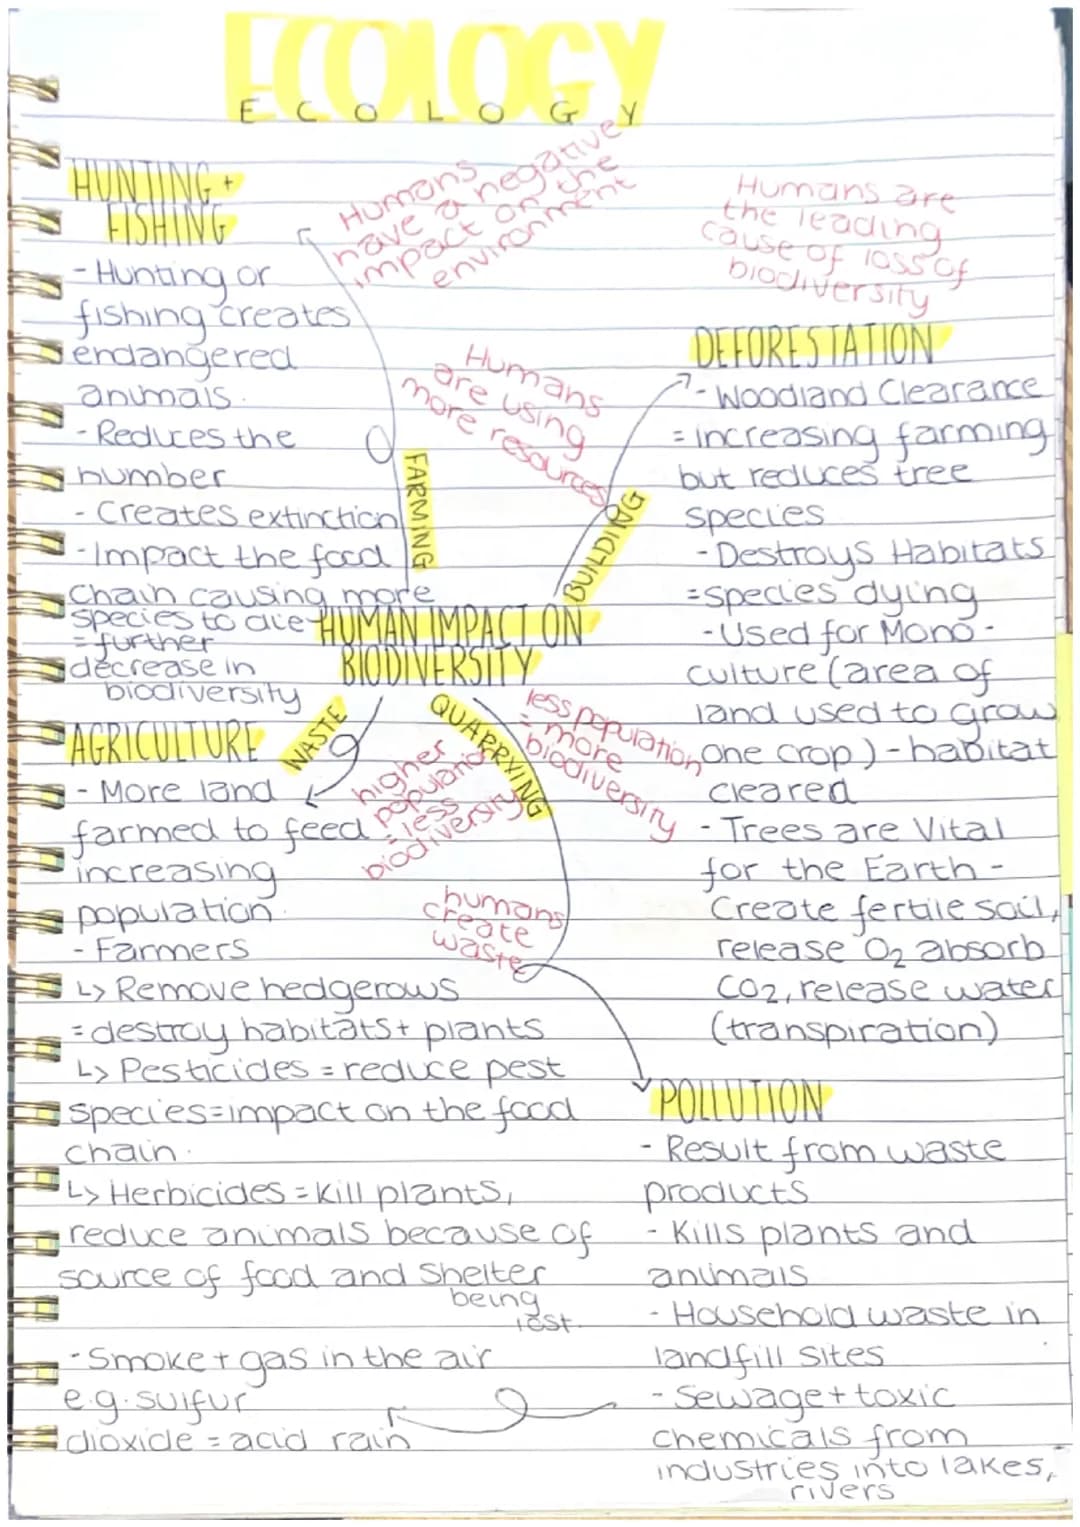 ECOLOGY
E C O L O G Y
HUNTING +
FISHING
- Hunting or
fishing creates
endangered
animals.
- Reduces the
number
- Creates extinction
- Impact the food
chain causing more
species to die
= further
decrease in
biodiversity
Humans
have a negative
impact on the
environment
Humans are
the leading
cause of loss of
biodiversity
Humans
are using
more resources
FARMING
BUILDING
HUMAN IMPACT ON
BIODIVERSITY
WASTE
QUARRYING
less population
= more
biodiversity
higher
= less
biodiversity
humans
create
waste
DEFORESTATION
- Woodland Clearance
= increasing farming
but reduces tree
species
- Destroys Habitats
= species dying
- Used for Mono -
culture (area of
land used to grow
one crop) - habitat
cleared
- Trees are Vital
for the Earth -
Create fertile soil,
release O2 absorb
CO2, release water
(transpiration)
AGRICULTURE
- More land
farmed to feed
increasing
population.
- Farmers
↳ Remove hedgerows
= destroy habitats + plants
↳ Pesticides = reduce pest
species = impact on the food
chain.
↳ Herbicides = Kill plants,
reduce animals because of
source of food and Shelter
being
lost.
- Smoke + gas in the air
e.g. sulfur
dioxide = acid rain
POLLUTION
- Result from waste
products
- Kills plants and
animals
- Household waste in
landfill sites
- Sewage + toxic
chemicals from
industries into lakes,
rivers